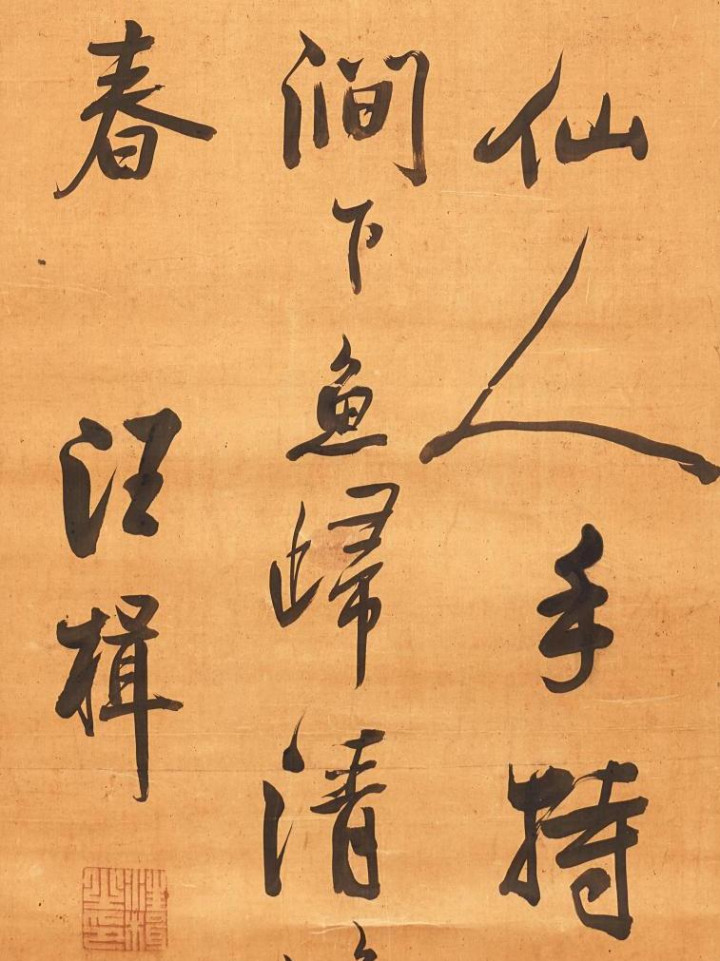 仙人手持
澗下魚歸清
春
汪楫